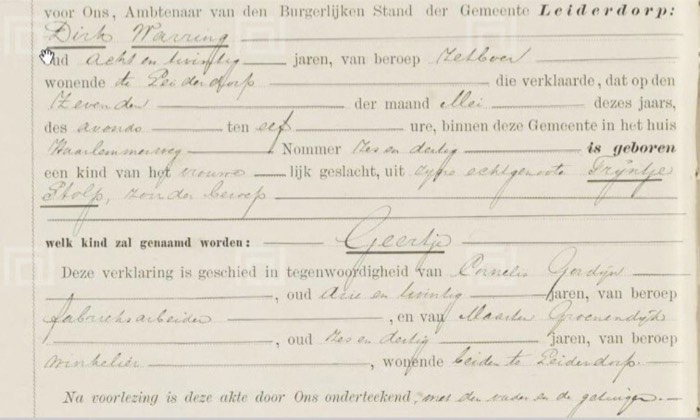 voor Ons, Ambtenaar van den Burgerlijken Stand der Gemeente Leiderdorp:
Dirk Warring
oud acht en twintig jaren, van beroep zetboer
wonende te Leiderdorp die verklaarde, dat op den
zevenden der maand Mei dezes jaars,
des avonds ten elf ure, binnen deze Gemeente in het huis
Haarlemmerweg Nommer zes en dertig is geboren
een kind van het vrouwe lijk geslacht, uit zijne echtgenoote Trijntje
Stolp, zonder beroep
welk kind zal genaamd worden: Geertje
Deze verklaring is geschied in tegenwoordigheid van Cornelis Gordijn
, oud drie en twintig jaren, van beroep
fabrieksarbeider , en van Maarten Groenendijk
, oud zes en dertig jaren, van beroep
winkelier , wonende beiden te Leiderdorp.
Na voorlezing is deze akte door Ons onderteekend, met den vader en de getuigen.